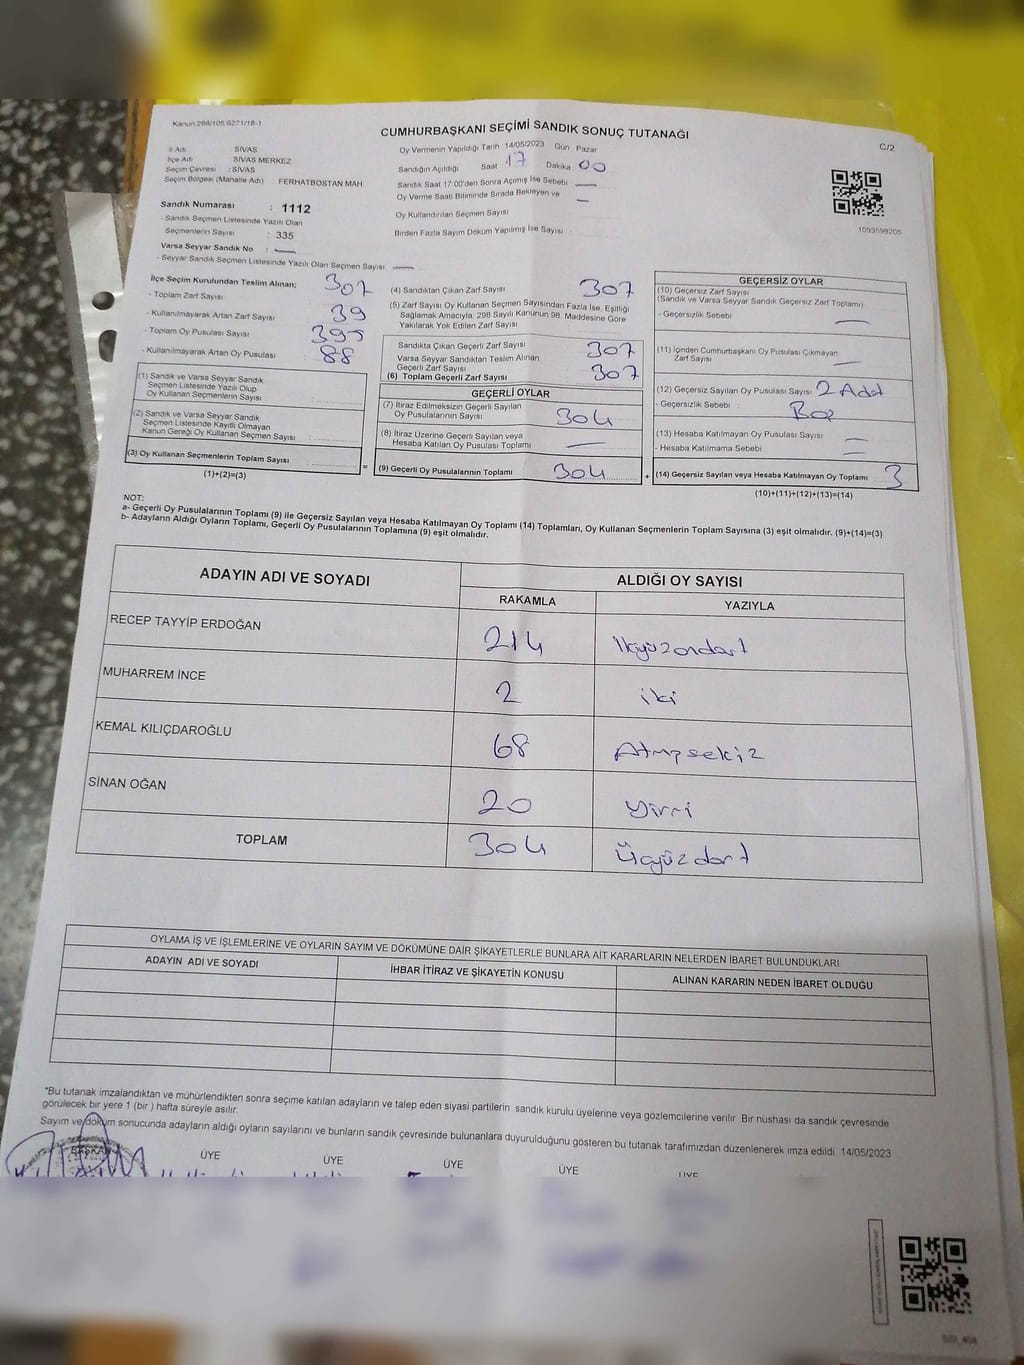 Kanun 298/105 6271/18-1
CUMHURBAŞKANI SEÇİMİ SANDIK SONUÇ TUTANAĞI
C/2
İl Adı SİVAS
İlçe Adı SİVAS MERKEZ
Seçim Çevresi : SİVAS
Seçim Bölgesi (Mahalle Adı) : FERHATBOSTAN MAH.
Oy Vermenin Yapıldığı Tarih 14/05/2023 Gün Pazar
Sandığın Açıldığı Saat 17 Dakika 00
Sandık Saat 17:00'den Sonra Açımış İse Sebebi —
Oy Verme Saati Bitiminde Sırada Bekleyen ve —
Oy Kullandırılan Seçmen Sayısı
Birden Fazla Sayım Döküm Yapılmış İse Sayısı :
1093598205
Sandık Numarası : 1112
- Sandık Seçmen Listesinde Yazılı Olan
Seçmenlerin Sayısı : 335
Varsa Seyyar Sandık No : —
- Seyyar Sandık Seçmen Listesinde Yazılı Olan Seçmen Sayısı : —
İlçe Seçim Kurulundan Teslim Alınan;
- Toplam Zarf Sayısı 307
- Kullanılmayarak Artan Zarf Sayısı 39
- Toplam Oy Pusulası Sayısı 395
- Kullanılmayarak Artan Oy Pusulası 88
(1) Sandık ve Varsa Seyyar Sandık
Seçmen Listesinde Yazılı Olup
Oy Kullanan Seçmenlerin Sayısı :
(2) Sandık ve Varsa Seyyar Sandık
Seçmen Listesinde Kayıtlı Olmayan
Kanun Gereği Oy Kullanan Seçmen Sayısı :
(3) Oy Kullanan Seçmenlerin Toplam Sayısı :
(1)+(2)=(3)
=
(4) Sandıktan Çıkan Zarf Sayısı 307
(5) Zarf Sayısı Oy Kullanan Seçmen Sayısından Fazla İse, Eşitliği
Sağlamak Amacıyla; 298 Sayılı Kanunun 98. Maddesine Göre
Yakılarak Yok Edilen Zarf Sayısı
Sandıkta Çıkan Geçerli Zarf Sayısı 307
Varsa Seyyar Sandıktan Teslim Alınan
Geçerli Zarf Sayısı
(6) Toplam Geçerli Zarf Sayısı 307
GEÇERLİ OYLAR
(7) İtiraz Edilmeksizin Geçerli Sayılan
Oy Pusulalarının Sayısı 304
(8) İtiraz Üzerine Geçerli Sayılan veya
Hesaba Katılan Oy Pusulası Toplamı —
(9) Geçerli Oy Pusulalarının Toplamı 304
+
GEÇERSİZ OYLAR
(10) Geçersiz Zarf Sayısı
(Sandık ve Varsa Seyyar Sandık Geçersiz Zarf Toplamı)
- Geçersizlik Sebebi —
(11) İçinden Cumhurbaşkanı Oy Pusulası Çıkmayan
Zarf Sayısı —
(12) Geçersiz Sayılan Oy Pusulası Sayısı 2 Adet
- Geçersizlik Sebebi : Boş
(13) Hesaba Katılmayan Oy Pusulası Sayısı —
- Hesaba Katılmama Sebebi —
(14) Geçersiz Sayılan veya Hesaba Katılmayan Oy Toplamı 3
(10)+(11)+(12)+(13)=(14)
NOT:
a- Geçerli Oy Pusulalarının Toplamı (9) ile Geçersiz Sayılan veya Hesaba Katılmayan Oy Toplamı (14) Toplamları, Oy Kullanan Seçmenlerin Toplam Sayısına (3) eşit olmalıdır. (9)+(14)=(3)
b- Adayların Aldığı Oyların Toplamı, Geçerli Oy Pusulalarının Toplamına (9) eşit olmalıdır.
ADAYIN ADI VE SOYADI
ALDIĞI OY SAYISI
RAKAMLA YAZIYLA
RECEP TAYYİP ERDOĞAN 214 İkiyüzondört
MUHARREM İNCE 2 iki
KEMAL KILIÇDAROĞLU 68 Atmışsekiz
SİNAN OĞAN 20 yirmi
TOPLAM 304 Üçyüzdört
OYLAMA İŞ VE İŞLEMLERİNE VE OYLARIN SAYIM VE DÖKÜMÜNE DAİR ŞİKAYETLERLE BUNLARA AİT KARARLARIN NELERDEN İBARET BULUNDUKLARI
ADAYIN ADI VE SOYADI İHBAR İTİRAZ VE ŞİKAYETİN KONUSU ALINAN KARARIN NEDEN İBARET OLDUĞU
*Bu tutanak imzalandıktan ve mühürlendikten sonra seçime katılan adayların ve talep eden siyasi partilerin sandık kurulu üyelerine veya gözlemcilerine verilir. Bir nüshası da sandık çevresinde
görülecek bir yere 1 (bir) hafta süreyle asılır.
Sayım ve döküm sonucunda adayların aldığı oyların sayılarını ve bunların sandık çevresinde bulunanlara duyurulduğunu gösteren bu tutanak tarafımızdan düzenlenerek imza edildi. 14/05/2023
BAŞKAN ÜYE ÜYE ÜYE ÜYE ÜYE